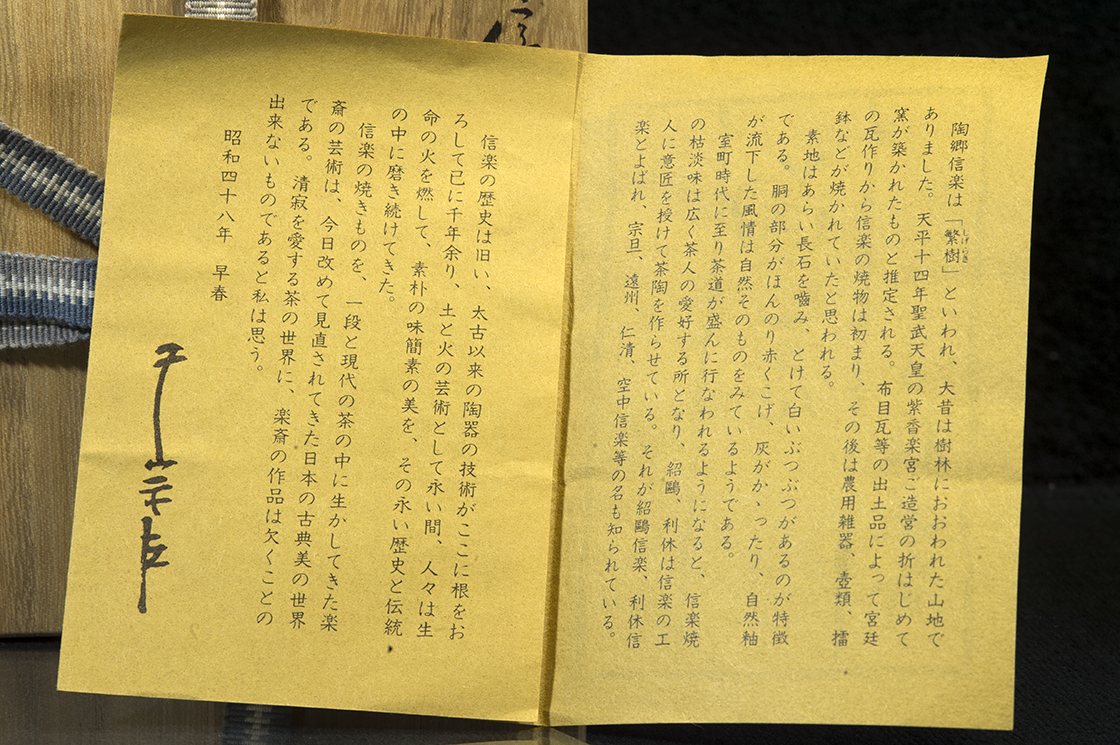 陶郷信楽は「繁樹」といわれ、大昔は樹林におおわれた山地で
しげいき
ありました。天平十四年聖武天皇の紫香楽宮ご造営の折はじめて
窯が築かれたものと推定される。布目瓦等の出土品によって宮廷
の瓦作りから信楽の焼物は初まり、その後は農用雑器、壺類、擂
鉢などが焼かれていたと思われる。
素地はあらい長石を嚙み、とけて白いぶつぶつがあるのが特徴
である。胴の部分がほんのり赤くこげ、灰がかゝったり、自然釉
が流下した風情は自然そのものをみているようである。
室町時代に至り茶道が盛んに行なわれるようになると、信楽焼
の枯淡味は広く茶人の愛好する所となり、紹鷗、利休は信楽の工
人に意匠を授けて茶陶を作らせている。それが紹鷗信楽、利休信
楽とよばれ、宗旦、遠州、仁清、空中信楽等の名も知られている。
信楽の歴史は旧い、太古以来の陶器の技術がここに根をお
ろして已に千年余り、土と火の芸術として永い間、人々は生
命の火を燃して、素朴の味簡素の美を、その永い歴史と伝統
の中に磨き続けてきた。
信楽の焼きものを、一段と現代の茶の中に生かしてきた楽
斎の芸術は、今日改めて見直されてきた日本の古典美の世界
である。清寂を愛する茶の世界に、楽斎の作品は欠くことの
出来ないものであると私は思う。
昭和四十八年 早春
信